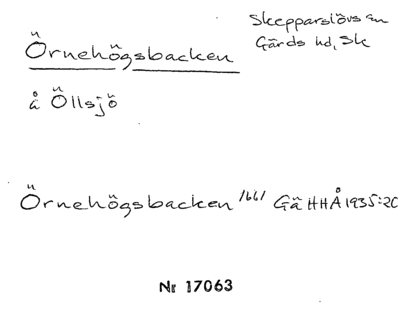 Örnehögsbacken
Skepparslövs sn
Gärds hd, Sk
å Öllsjö
Örnehögsbacken 1661 Gä HHÅ 1935:20
Nr 17063